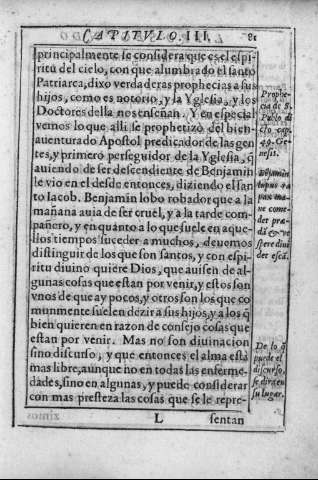 CAPITVLO. III. 81
principalmente se considera que es el espi-
ritu del cielo, con que alumbrado el santo
Patriarca, dixo verdaderas prophecias a sus
hijos, como es notorio, y la Yglesia, y los
Doctores della nos enseñan. Y en especial
vemos lo que alli se prophetizò del bien-
auenturado Apostol predicador de las gen-
tes, y primero perseguidor de la Yglesia, q̃
auiendo de ser descendiente de Benjamin
le vio en el desde entonces, diziendo el san-
to Iacob. Benjamin lobo robador que a la
mañana auia de ser cruel, y a la tarde com-
pañero, y en quanto a lo que suele en aque-
llos tiempos suceder a muchos, deuemos
distinguir de los que son santos, y con espi-
ritu diuino quiere Dios, que auisen de al-
gunas cosas que estan por venir, y estos son
vnos de que ay pocos, y otros son los que co
munmente suelen dezir a sus hijos, y a los q̃
bien quieren en razon de consejo cosas que
estan por venir. Mas no son diuinacion
sino discurso, y que entonces el alma està
mas libre, aunque no en todas las enferme-
dades, sino en algunas, y puede considerar
con mas presteza las cosas que se le repre-
L sentan
Prophe-
cia de S.
Pablo di
cho cap.
49. Ge-
nesis.
Benjamin
lupus ra
pax ma-
ne come-
det præ-
dã & ve
spere diui
det escã.
De lo q̃
puede el
discurso,
se dira en
su lugar.